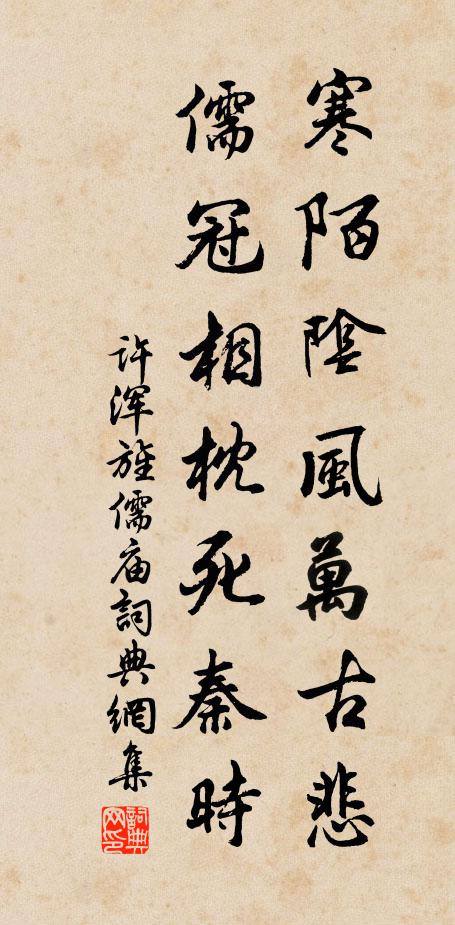 寒陌陰風萬古悲
儒冠相枕死秦時
许浑旌儒庙詞典網集
詞典网印